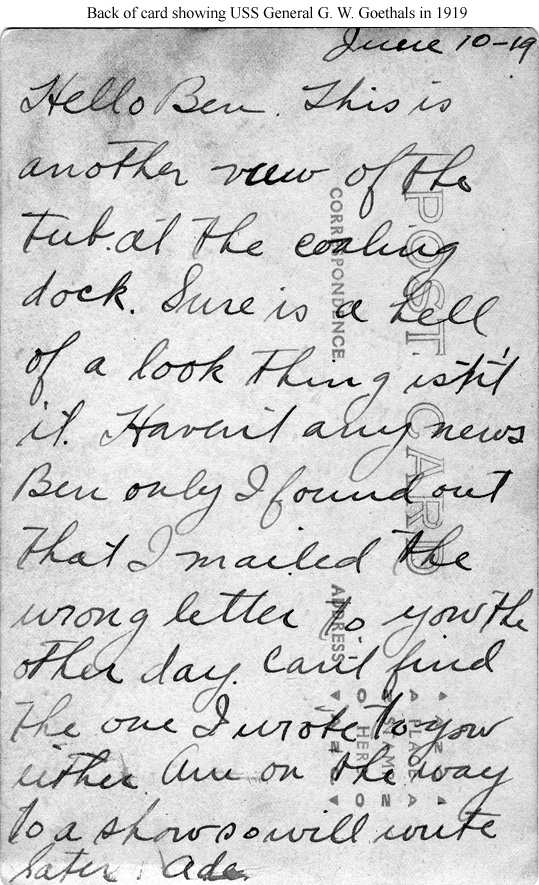 Back of card showing USS General G. W. Goethals in 1919
June 10-19
Hello Ben. This is
another view of the
tub. at the coaling
dock. Sure is a hell
of a look thing isn't
it. Haven't any news
Ben only I found out
that I mailed the
wrong letter to you the
other day. Can't find
the one I wrote to you
either. Am on the way
to a show so will write
later. Ade.
POST CARD
CORRESPONDENCE.
ADDRESS
PLACE
STAMP
HERE